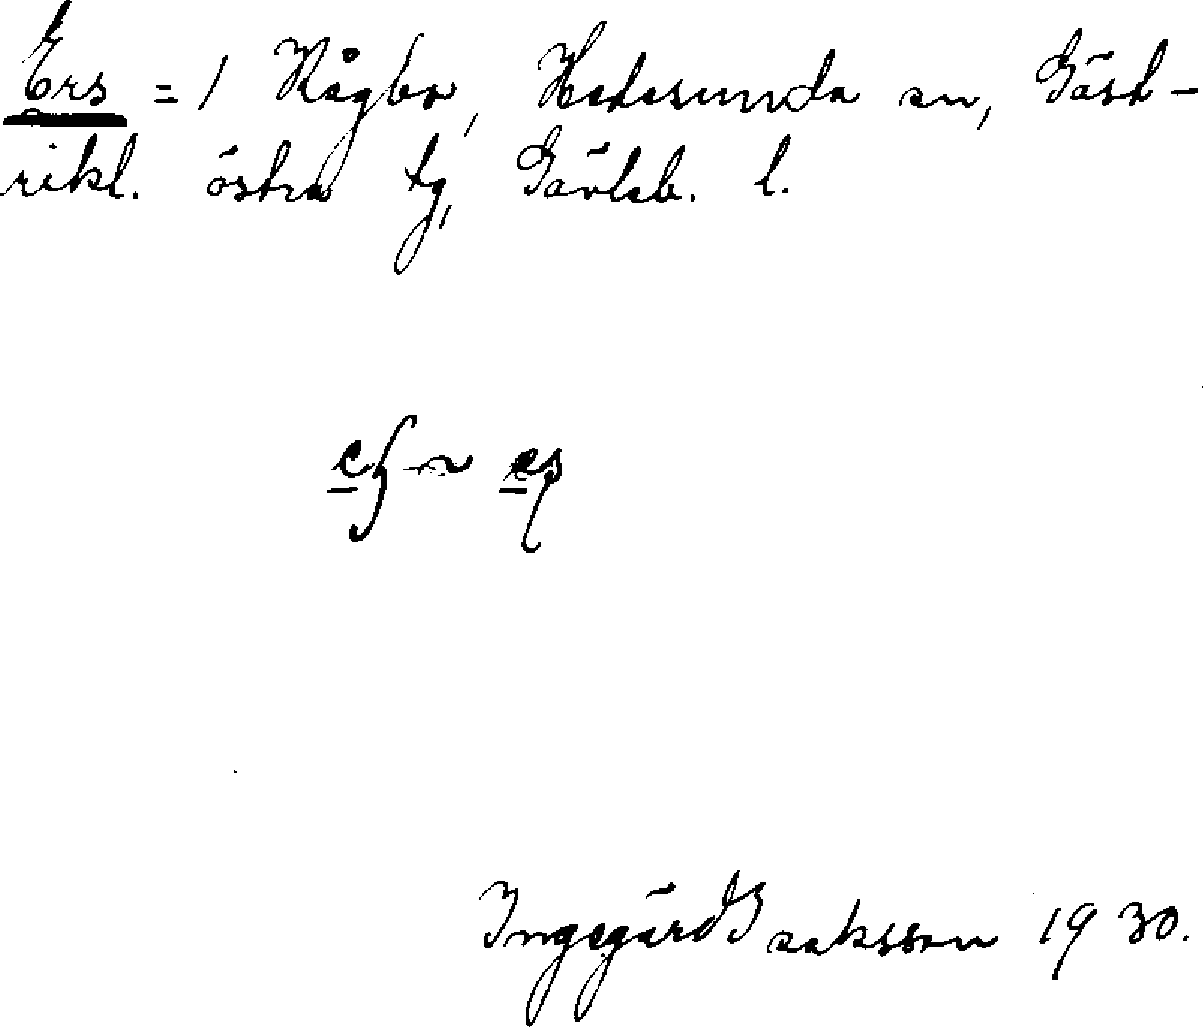 Ers = 1 Hågbo, Hedesunda sn, Gästrikl. östra tg, Gävleb. l.
Ingegärd Isaksson 1930.